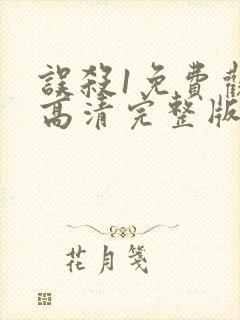 誤殺1免費觀
高清完整版
花月箋